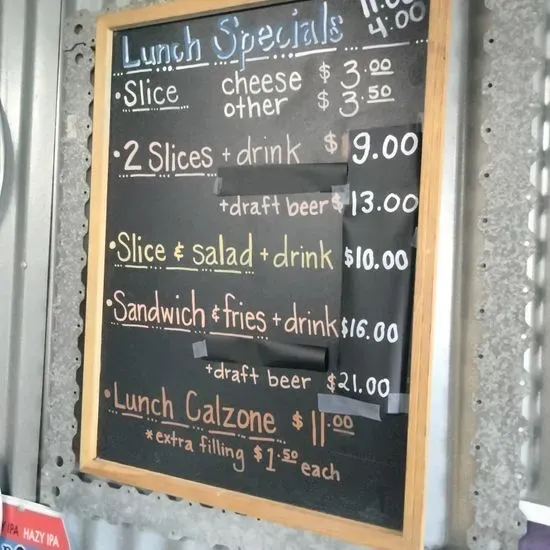 Lunch Specials 11:00
4:00
• Slice cheese $3.00
other $3.50
• 2 Slices + drink $9.00
+draft beer $13.00
• Slice & salad + drink $10.00
• Sandwich & fries + drink $16.00
+draft beer $21.00
• Lunch Calzone $11.00
*extra filling $1.50 each
IPA HAZY IPA